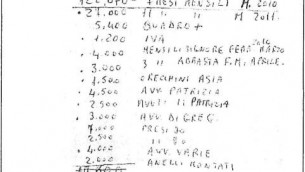 122,070 - PRESI MENSILI M. 2010
27.000 " " " M 2011.
5,400 QUADRO +
1.200 IVA
4.000 MENSILI SIGNORE FEBB. MARZO 2010
3.000 3 " ASPASIA F.M. APRILE.
1.500 ORECCHINI ASIA
4.500 AVV. PATRIZIA
2.500 " PATRIZIA
3.000 AVV. DI GREG.
7.000 PRESI 30
2.500 " 30
4.000 AVV. VARIE
2.000 ANELLI MONTATI